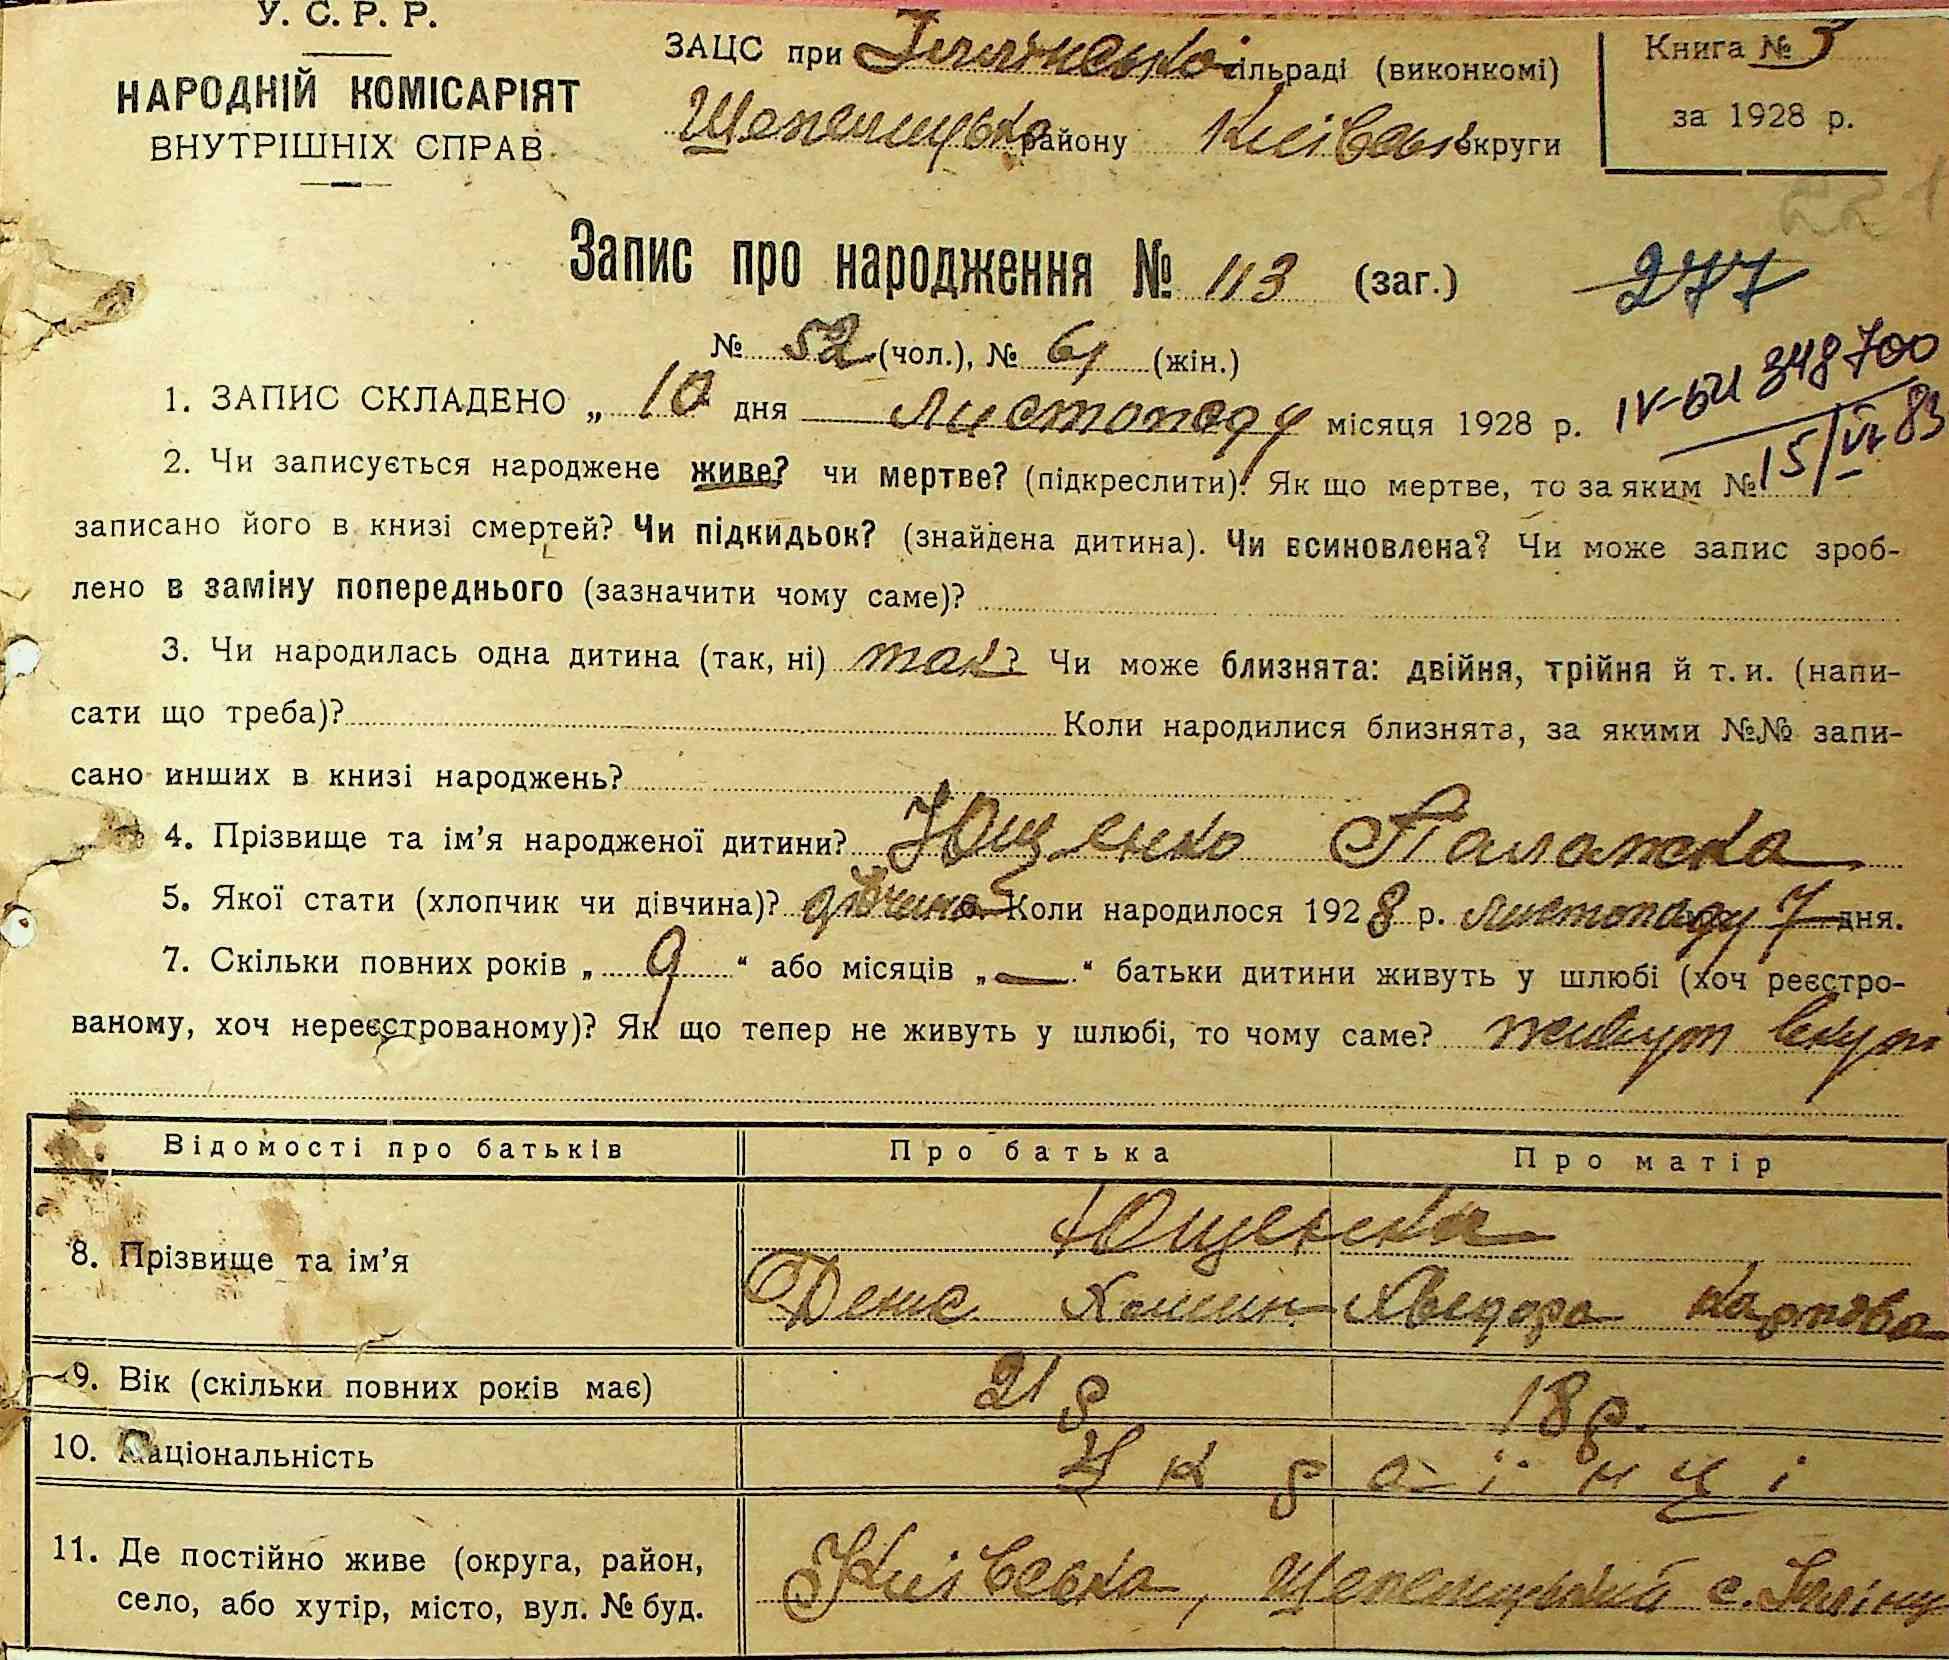 У. С. Р. Р.
НАРОДНІЙ КОМІСАРІЯТ
ВНУТРІШНІХ СПРАВ
ЗАЦС при сільраді (виконкомі)
району Київської округи
Книга № 3
за 1928 р.
221
Запис про народження № 113 (заг.)
277
№ 52 (чол.), № 61 (жін.)
IV-БИ 348700
15/VI 83
1. ЗАПИС СКЛАДЕНО „ 10 дня листопаду місяця 1928 р.
2. Чи записується народжене живе? чи мертве? (підкреслити). Як що мертве, то за яким №
записано його в книзі смертей? Чи підкидьок? (знайдена дитина). Чи всиновлена? Чи може запис зроб-
лено в заміну попереднього (зазначити чому саме)?
3. Чи народилась одна дитина (так, ні) так? Чи може близнята: двійня, трійня й т. и. (напи-
сати що треба)? Коли народилися близнята, за якими №№ запи-
сано инших в книзі народжень?
4. Прізвище та ім’я народженої дитини? Ющенко Палажка
5. Якої стати (хлопчик чи дівчина)? дівчина Коли народилося 1928 р. листопаду 7 дня.
7. Скільки повних років „ 9 “ або місяців „ — “ батьки дитини живуть у шлюбі (хоч реєстро-
ваному, хоч нереєстрованому)? Як що тепер не живуть у шлюбі, то чому саме? живут вкупі
Відомості про батьків Про батька Про матір
8. Прізвище та ім’я Ющенки
Денис Явдора Карпова
9. Вік (скільки повних років має) 21 р 18 р.
10. Національність Українці
11. Де постійно живе (округа, район, Київська, с.
село, або хутір, місто, вул. № буд.